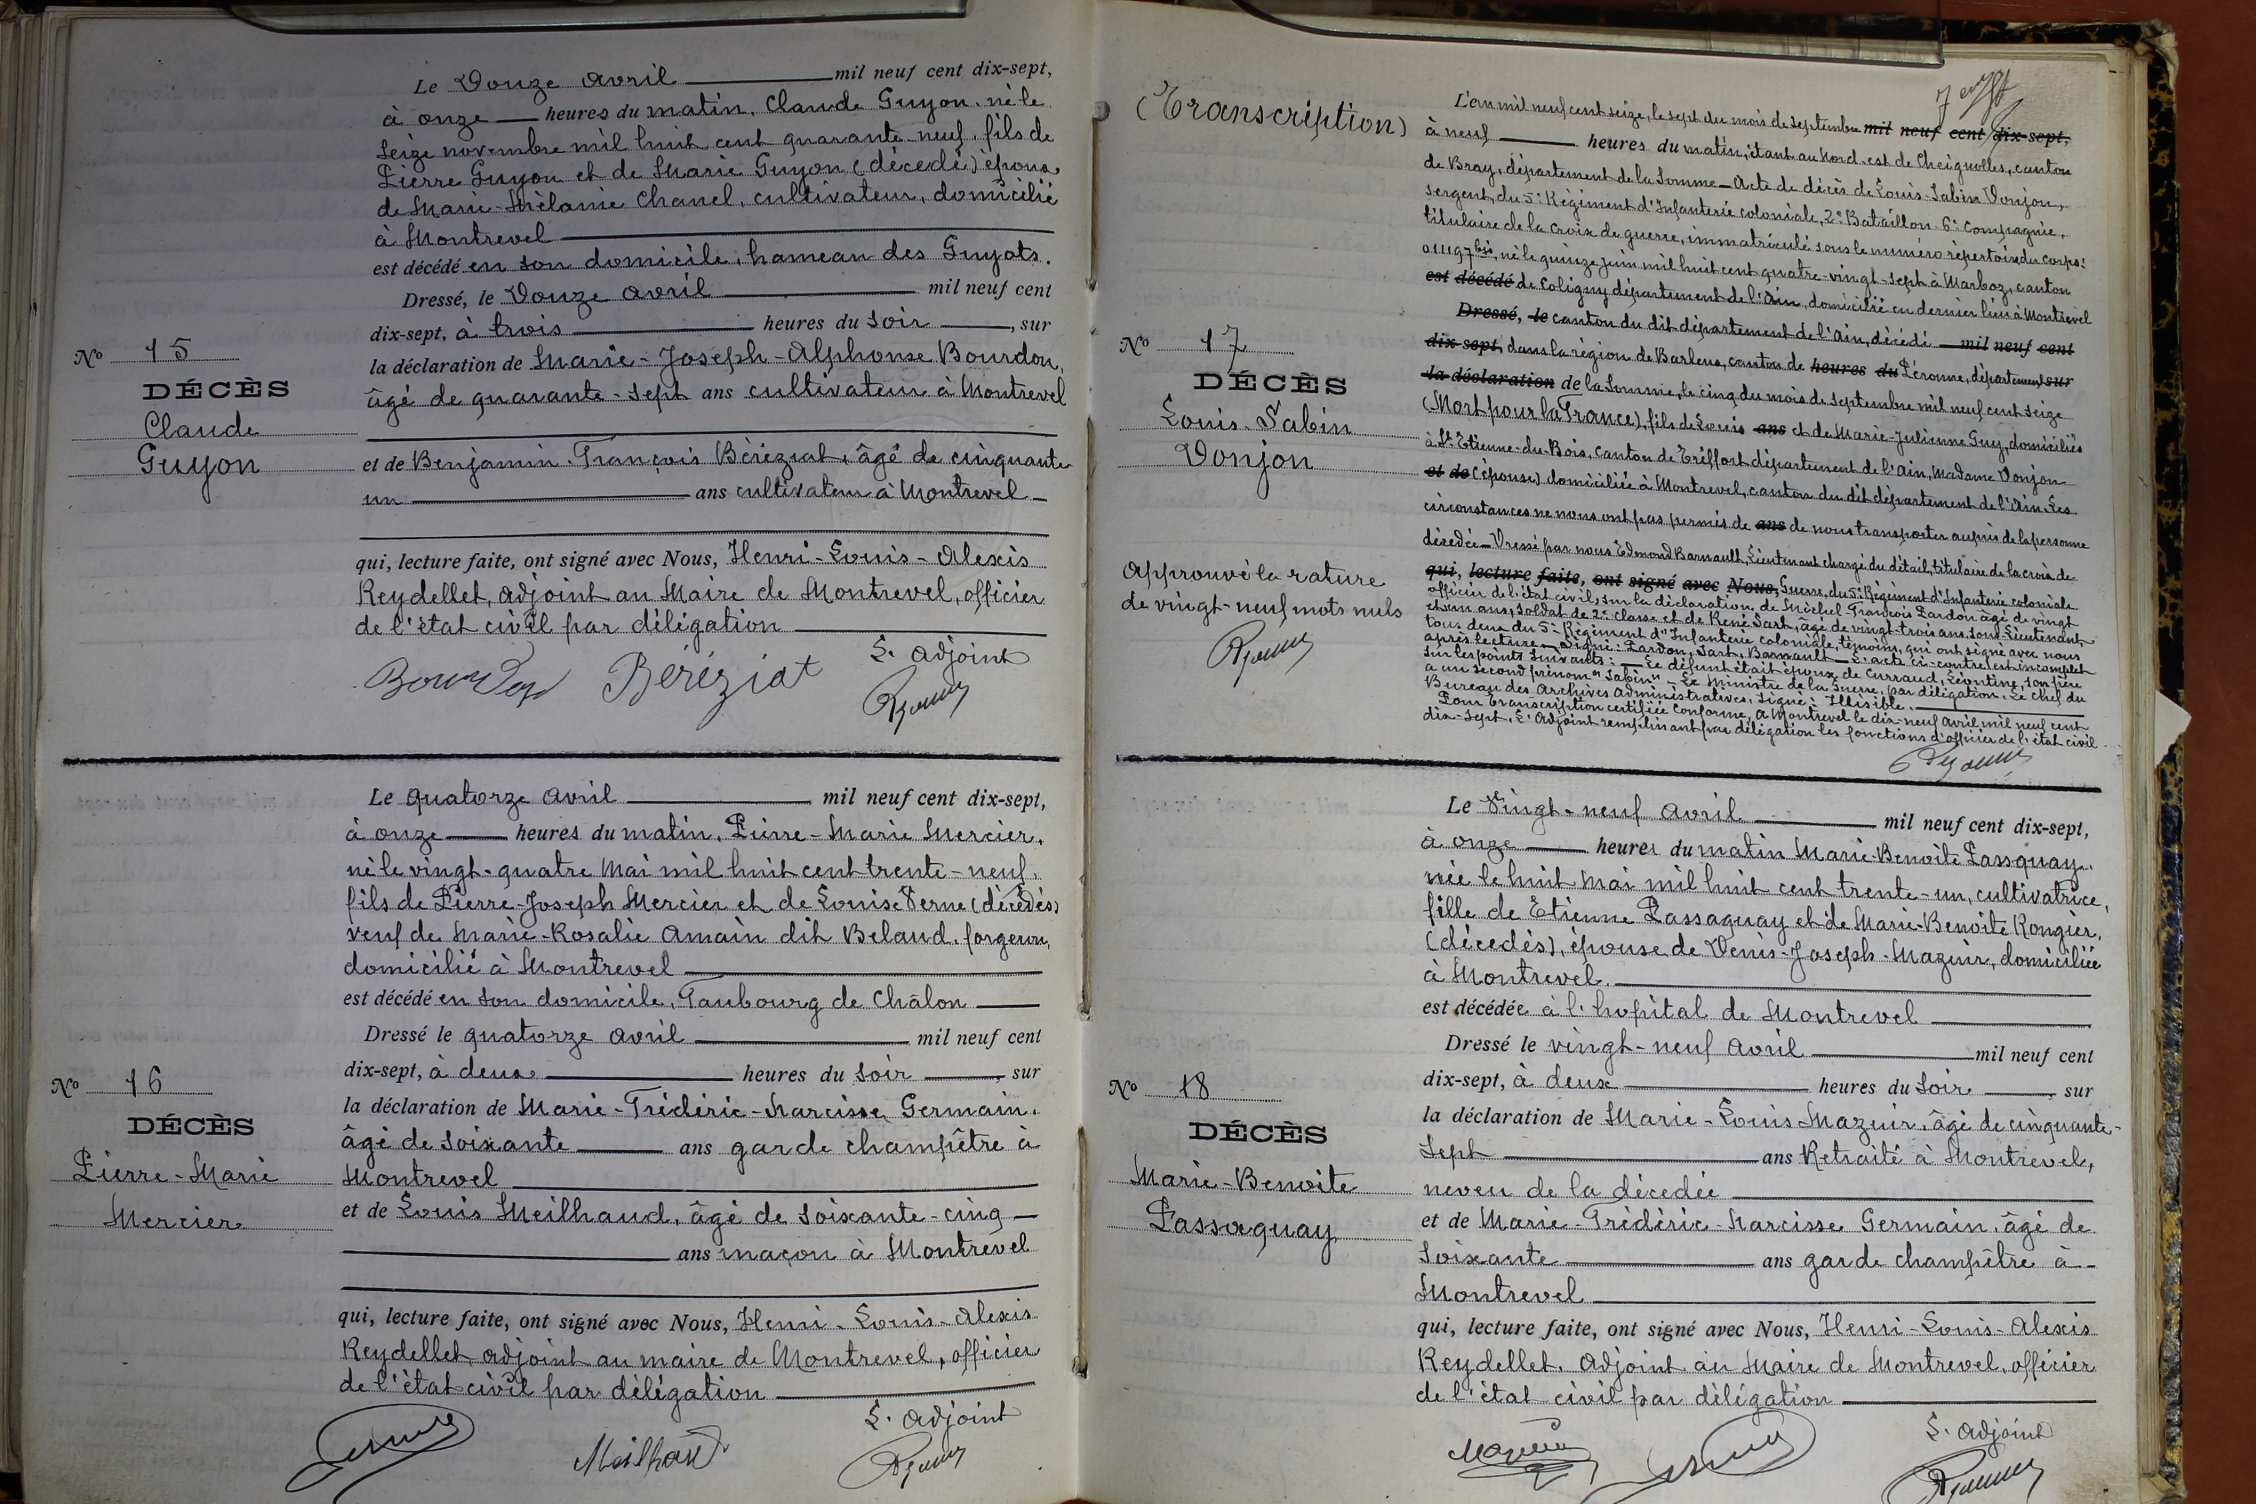 Le Douze avril mil neuf cent dix-sept,
à onze heures du matin, Claude Guyon, né le
seize novembre mil huit cent quarante-neuf, fils de
Pierre Guyon et de Marie Guyon (décédé) époux
de Marie-Mélanie Chanel, cultivateur, domicilié
à Montrevel
est décédé en son domicile, hameau des Guyots.
Dressé, le Douze avril mil neuf cent
dix-sept, à trois heures du soir, sur
la déclaration de Marie-Joseph-Alphonse Bourdon,
âgé de quarante-sept ans cultivateur à Montrevel
et de Benjamin-François Béréziat, âgé de cinquante
un ans cultivateur à Montrevel
qui, lecture faite, ont signé avec Nous, Henri-Louis-Alexis
Reydellet, adjoint au Maire de Montrevel, officier
de l'état civil par délégation
L'adjoint
Bourdon Béréziat
No 15
DÉCÈS
Claude
Guyon
Le quatorze avril mil neuf cent dix-sept,
à onze heures du matin, Pierre-Marie Mercier,
né le vingt-quatre mai mil huit cent trente-neuf,
fils de Pierre-Joseph Mercier et de Louise Verne (décédés)
veuf de Marie-Rosalie Amain dit Belaud, forgeron,
domicilié à Montrevel
est décédé en son domicile, Faubourg de Châlon
Dressé le quatorze avril mil neuf cent
dix-sept, à deux heures du soir, sur
la déclaration de Marie-Frédéric-Narcisse Germain,
âgé de soixante ans garde champêtre à
Montrevel
et de Louis Meilhaud, âgé de soixante-cinq
ans maçon à Montrevel
qui, lecture faite, ont signé avec Nous, Henri-Louis-Alexis
Reydellet, adjoint au maire de Montrevel, officier
de l'état civil par délégation
L'adjoint
Meilhaud
No 16
DÉCÈS
Pierre-Marie
Mercier
(Transcription)
L'an mil neuf cent seize, le sept du mois de septembre mil neuf cent dix-sept,
à neuf heures du matin, étant au Nord-est de Cheignolles, canton
de Bray, département de la Somme - Acte de décès de Louis-Sabin Donjon,
sergent, du 5e Régiment d'Infanterie coloniale, 2e Bataillon 6e Compagnie,
titulaire de la croix de guerre, immatriculé sous le numéro répertoire du corps:
011197 bis, né le quinze juin mil huit cent quatre-vingt-sept à Marboz, canton
est décédé de Coligny département de l'Ain, domicilié en dernier lieu à Montrevel
Dressé, le canton du dit département de l'Ain, décédé mil neuf cent
dix-sept, dans la région de Barleux, canton de heures du Péronne, département sur
la déclaration de la Somme, le cinq du mois de septembre mil neuf cent seize
(Mort pour la France), fils de Louis ans et de Marie-Julienne Guy, domiciliés
à St-Etienne-du-Bois, canton de Tréffort département de l'Ain, Madame Donjon
et de (épouse) domiciliée à Montrevel, canton du dit département de l'Ain. Les
circonstances ne nous ont pas permis de ans de nous transporter auprès de la personne
décédée - Dressé par nous Edmond Barnault, Lieutenant chargé du détail, titulaire de la croix de
qui, lecture faite, ont signé avec Nous, Guerre, du 5e Régiment d'Infanterie coloniale
officier de l'état civil, sur la déclaration de Michel-François Pardon âgé de vingt
et un ans, soldat de 2e classe et de René Sart, âgé de vingt-trois ans, sous-Lieutenant,
tous deux du 5e Régiment d'Infanterie coloniale, témoins, qui ont signé avec nous
après lecture - Signé: Pardon, Sart, Barnault - L'acte ci-contre est incomplet
sur les points suivants: - Le défunt était époux de Curraud, Léontine, son père
a un second prénom "Sabin" - Le Ministre de la Guerre, par délégation, Le chef du
Bureau des Archives Administratives, signé: Illisible.
Pour transcription certifiée conforme, à Montrevel le dix-neuf avril mil neuf cent
dix-sept. L'Adjoint remplissant par délégation les fonctions d'officier de l'état civil
No 17
DÉCÈS
Louis-Sabin
Donjon
Approuvé la rature
de vingt-neuf mots nuls
Le vingt-neuf avril mil neuf cent dix-sept,
à onze heures du matin Marie-Benoite Passquay,
née le huit mai mil huit cent trente-un, cultivatrice,
fille de Etienne Passaquay et de Marie-Benoite Rongier,
(décédés), épouse de Denis-Joseph-Mazuir, domiciliée
à Montrevel.
est décédée à l'hopital de Montrevel
Dressé le vingt-neuf avril mil neuf cent
dix-sept, à deux heures du soir, sur
la déclaration de Marie-Louis Mazuir, âgé de cinquante-
sept ans Retraité à Montrevel,
neveu de la décédée
et de Marie-Frédéric-Narcisse Germain, âgé de
soixante ans garde champêtre à
Montrevel
qui, lecture faite, ont signé avec Nous, Henri-Louis-Alexis
Reydellet, Adjoint au Maire de Montrevel, officier
de l'état civil par délégation
L'adjoint
No 18
DÉCÈS
Marie-Benoite
Passaquay